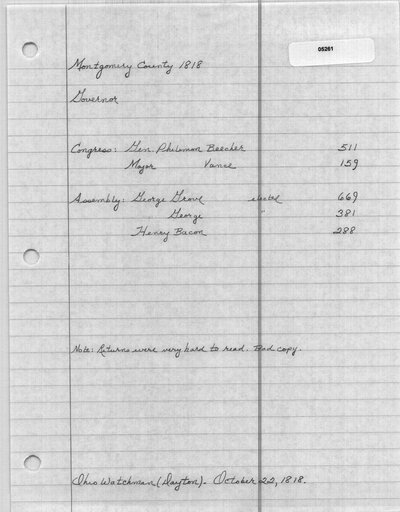 05261
Montgomery County 1818
Governor
Congress: Gen. Philemon Beecher 511
Major Vance 159
Assembly: George Grove elected 669
George " 381
Henry Bacon 288
Note: Returns were very hard to read. Bad copy.
Ohio Watchman (Dayton). October 22, 1818.